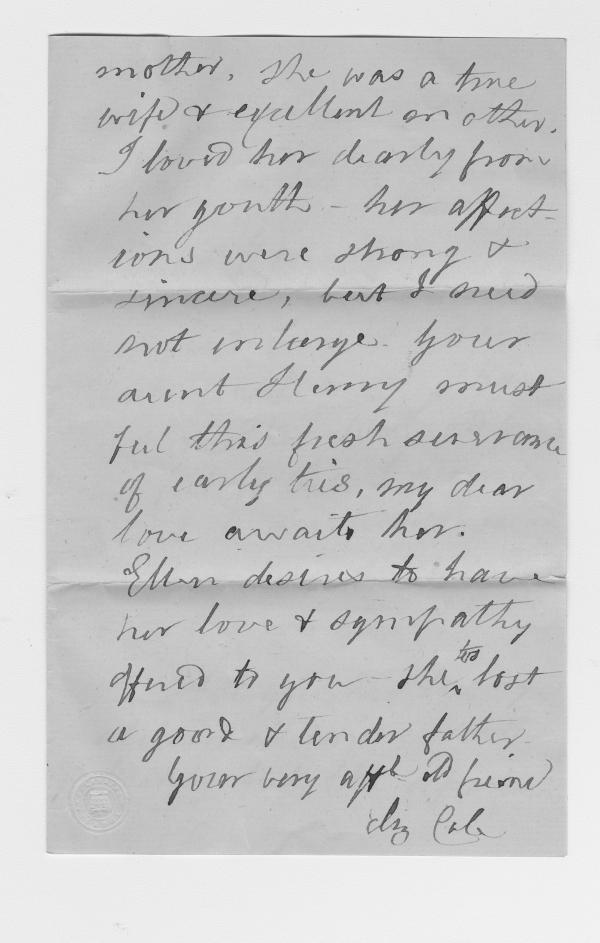 mother, she was a true
wife & excellent mother.
I loved her dearly from
her youth - her affect-
ions were strong &
sincere, but I need
not enlarge. Your
aunt Henry must
feel this fresh severance
of early ties, my dear
love awaits her.
Ellen desires to have
her love & sympathy
offered to you - she has lost
a good & tender father.
Your very affte old friend
Eliz Cole